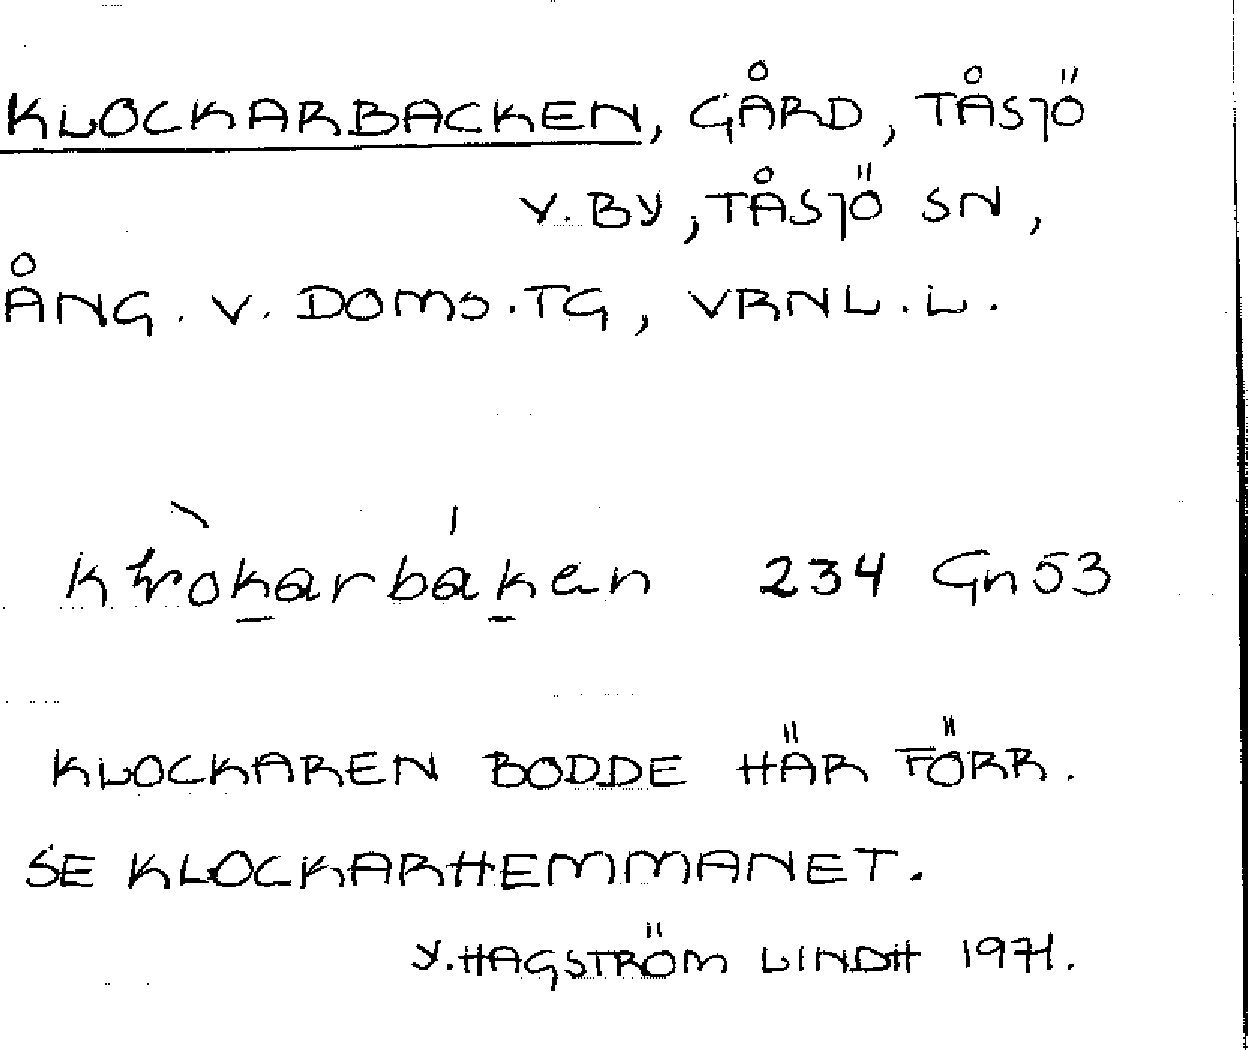 KLOCKARBACKEN, GÅRD, TÅSJÖ
V. BY, TÅSJÖ SN,
ÅNG. V. DOMS.TG, VRNL.L.
234 Gn53
KLOCKAREN BODDE HÄR FÖRR.
SE KLOCKARHEMMANET.
Y.HAGSTRÖM LINDH 1971.